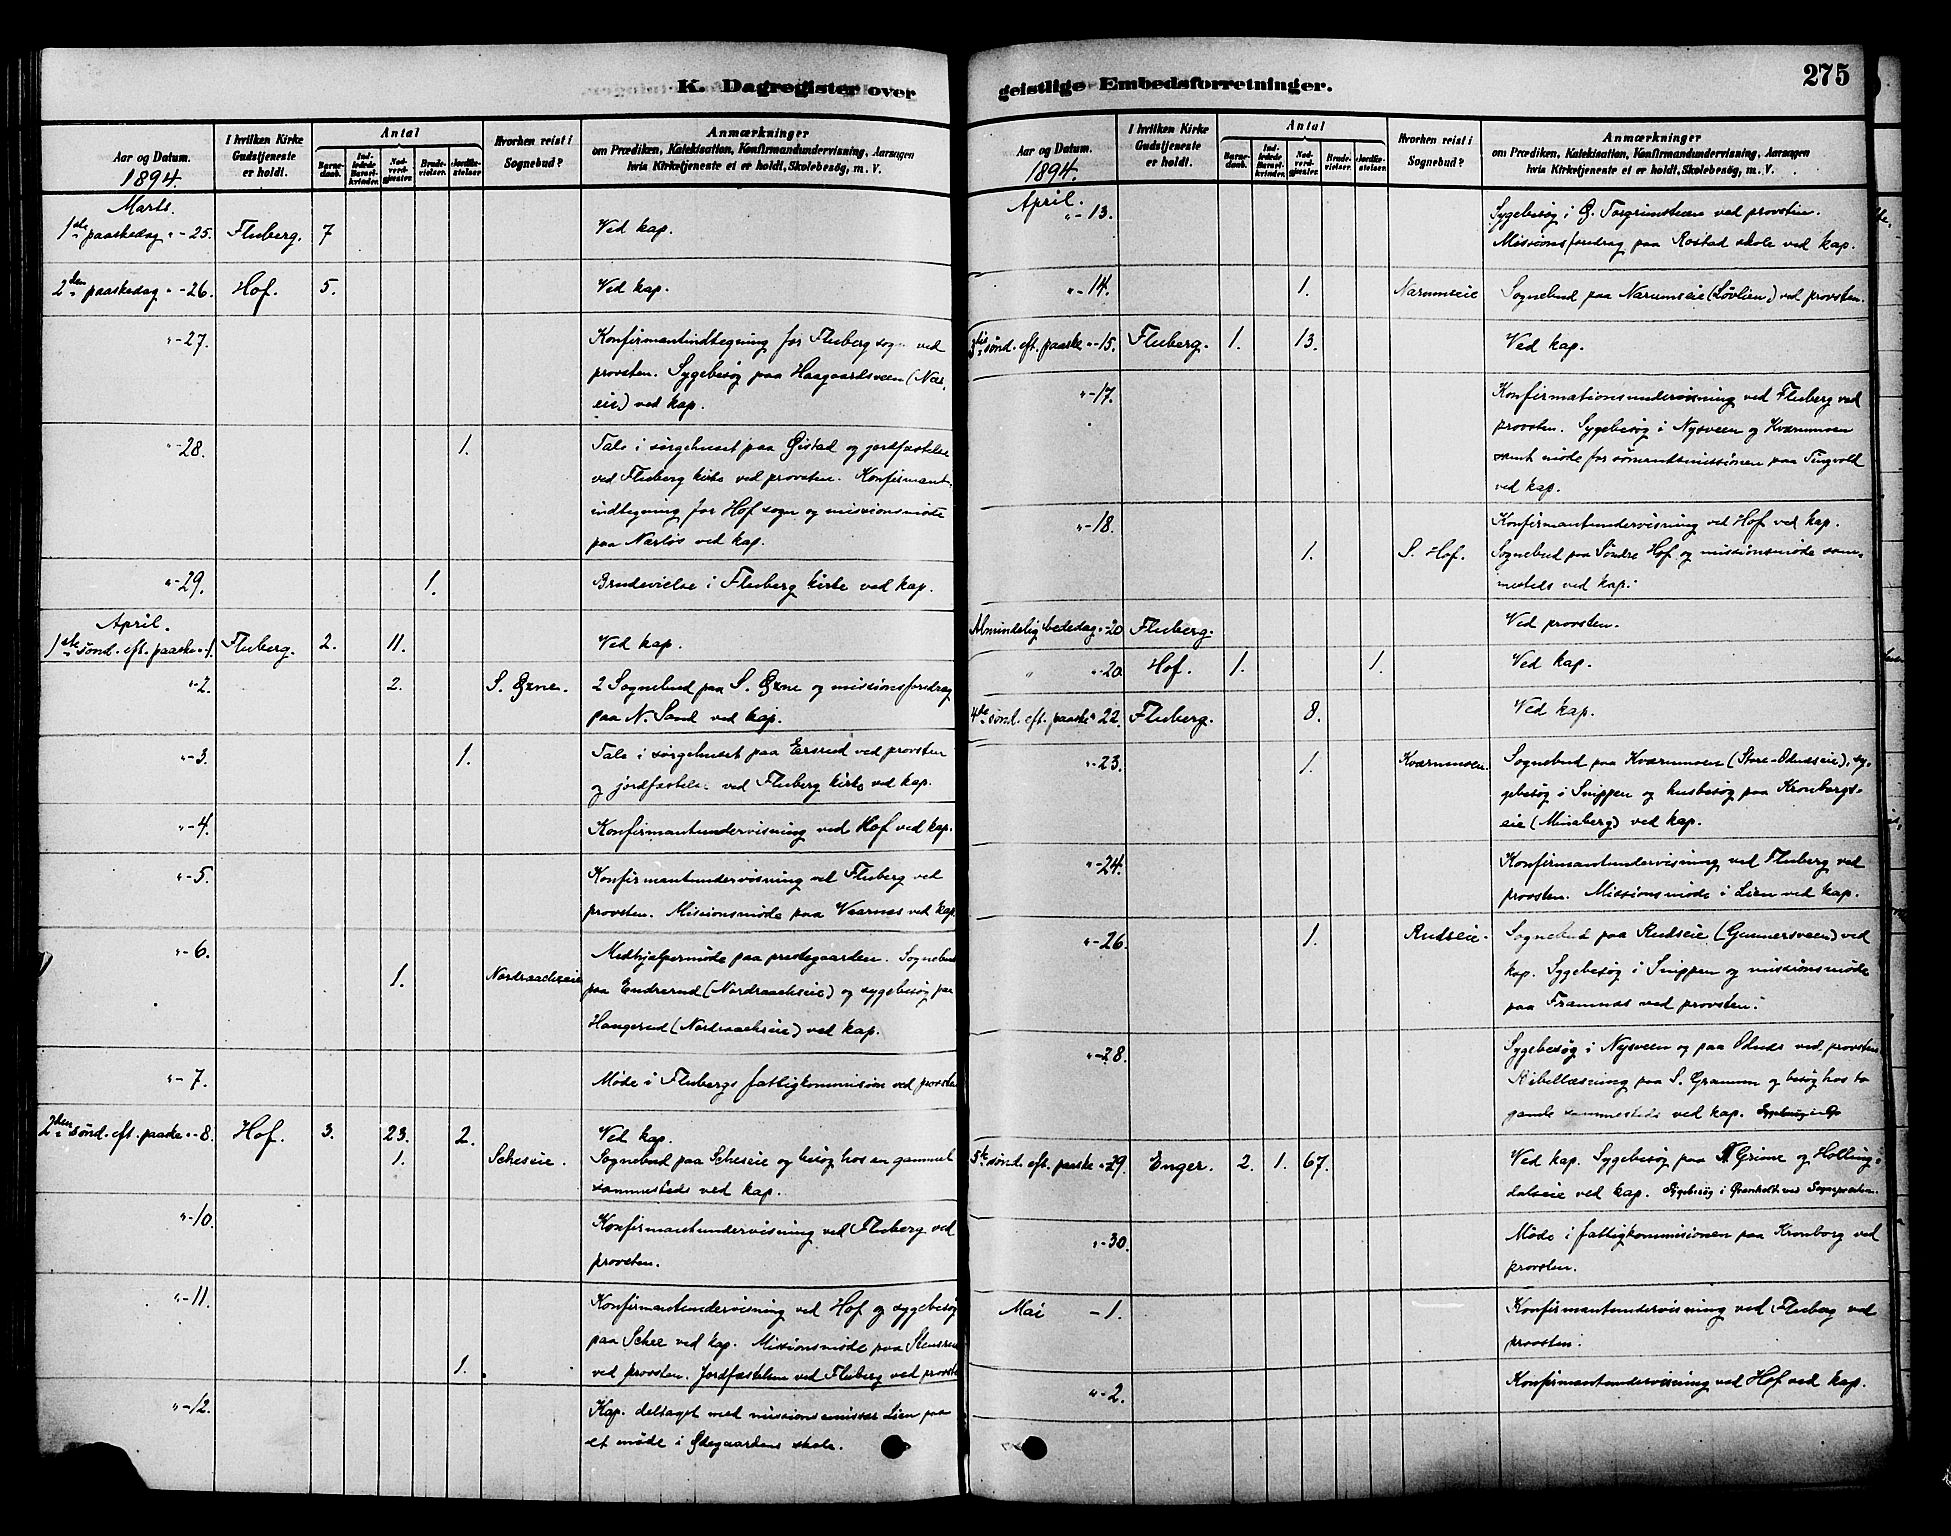 K. Dagregister over
Aar og Datum.
1894.
I hvilken Kirke Gudstjeneste er holdt.
Antal
Barnedaab.
Indledede Barselkvinder.
Nadverdgjester.
Brudevielser.
Jordfæstelser.
Hvorhen reist i Sognebud?
Anmærkninger
om Prædiken, Katekisation, Konfirmandundervisning, Aarsagen
hvis Kirketjeneste ei er holdt, Skolebesøg, m. V.
Marts.
1ste paaskedag "-25. Fluberg. 7 Ved kap.
2den paaskedag "-26. Hof. 5. Ved kap.
"-27. Konfirmantindtegning for Fluberg sogn ved
provsten. Sygebesøg paa Haagaardsveen (Nær
eie) ved kap.
"-28. 1. Tale i sørgehuset paa Øistad og jordfæstelse
ved Fluberg kirke ved provsten. Konfirmant-
indtegning for Hof sogn og missionsmøde
paa Narløs ved kap.
"-29. 1. Brudevielse i Fluberg kirke ved kap.
April.
1ste sønd. eft. paaske "-1. Fluberg. 2. 11. Ved kap.
"-2. 2. S. Gxne. 2 Sognebud paa S. Gxne og missionsforedrag
paa N. Sand ved kap.
"-3. 1. Tale i sørgehuset paa Ersrud ved provsten
og jordfæstelse ved Fluberg kirke ved kap.
"-4. Konfirmantundervisning ved Hof ved kap.
"-5. Konfirmantundervisning ved Fluberg ved
provsten. Missionsmøde paa Vaarnæs ved kap.
"-6. Medhjælpermøde paa prestegaarden. Sognebud
1. Nordraakseie paa Endrerud (Nordraakseie) og sygebesøg paa
Haugerud (Nordraakseie) ved kap.
"-7. Møde i Flubergs fattigkommision ved provsten
2den sønd. eft. paaske "-8. Hof. 3. 23. 2. Ved kap.
1. Scheseie. Sognebud paa Scheseie og besøg hos en gammel
sammesteds ved kap.
"-10. Konfirmantundervisning ved Fluberg ved
provsten.
"-11. Konfirmantundervisning ved Hof og sygebesøg
paa Schee ved kap. Missionsmøde paa Stensrud
1. ved provsten. Jordfæstelse ved Fluberg ved provsten
"-12. Kap. deltaget med missionsemissær Lien paa
et møde i Ødegaardens skole.
geistlige Embedsforretninger.
275
Aar og Datum.
1894.
I hvilken Kirke Gudstjeneste er holdt.
Antal
Barnedaab.
Indledede Barselkvinder.
Nadverdgjester.
Brudevielser.
Jordfæstelser.
Hvorhen reist i Sognebud?
Anmærkninger
om Prædiken, Katekisation, Konfirmandundervisning, Aarsagen
hvis Kirketjeneste ei er holdt, Skolebesøg, m. V.
April.
"-13. Sygebesøg i G. Torgrimsteen ved provsten.
Missionsforedrag paa Rostad skole ved kap.
"-14. 1. Narumseie Sognebud paa Narumseie (Løvlien) ved provsten.
3die sønd. eft. paaske "-15. Fluberg. 1. 13. Ved kap.
"-17. Konfirmationsundervisning ved Fluberg ved
provsten. Sygebesøg i Nysveen og Kværnmoen
samt møde for sømandsmissionen paa Tingvold
ved kap.
"-18. Konfirmantundervisning ved Hof ved kap.
1. S. Hof. Sognebud paa Søndre Hof og missionsmøde sam-
mesteds ved kap.
Almindelig bededag "-20 Fluberg. Ved provsten.
" "-20. Hof. 1. 1. Ved kap.
4de sønd. eft. paaske "-22. Fluberg. 8. Ved kap.
"-23. 1. Kværnmoen. Sognebud paa Kværnmoen (Store-Odnæseie), sy-
gebesøg i Snippen og husbesøg paa Kronborgs-
eie (Minaberg) ved kap.
"-24. Konfirmantundervisning ved Fluberg ved
provsten. Missionsmøde i Lien ved kap.
"-26. 1. Rudseie. Sognebud paa Rudseie (Gunnersveen) ved
kap. Sygebesøg i Snippen og missionsmøde
paa Framnæs ved provsten.
"-28. Sygebesøg i Nysveen og paa Odnæs ved provsten
Bibellæsning paa S. Grimen og besøg hos to
gamle sammesteds ved kap.
5te sønd. eft. paaske "-29. Enger. 2. 1. 67. Ved kap. Sygebesøg paa N Grime og Holling-
dalseie ved kap. Sygebesøg i Grønholt ved Sognepresten.
"-30. Møde i fattigkommisionen paa Kronborg ved
provsten.
Mai -1. Konfirmantundervisning ved Fluberg ved
provsten.
"-2. Konfirmantundervisning ved Hof ved kap.